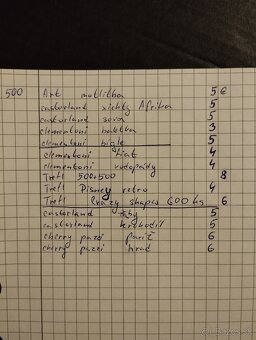 500 Art modlitba 5 €
castorland xichty Afrika 5
castorland sova 5
clementoni babička 3
clementoni bigle 5
clementoni 4
clementoni vodopády 4
Trefl 500+500 8
Trefl Disney retro 4
Trefl Crazy shapes 600 ks 6
castorland žaby 5
castorland krokodíl 5
cherry pazzi paríž 6
cherry pazzi hrad 6